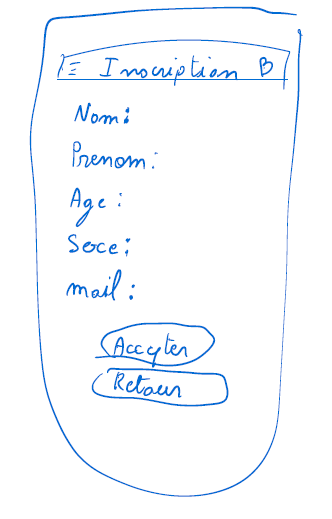 Inscription B
Nom :
Prenom :
Age :
Sexe :
mail :
Accepter
Retour